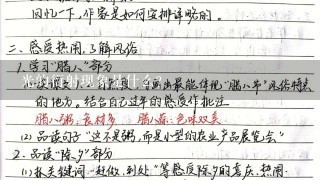 回忆一下,作家是如何安排详略的。
二、感受热闹,了解风俗
1.学习"腊八"部分
画出最能体现"腊八节"风俗特点
的地方。结合自己过年的感受作批注
腊八粥:食材多 腊八蒜:色味双美
(2)品读句子"这不是粥,而是小型的农业产品展览会"
2.品读"除夕"部分
(1)抓关键词"赶做、到处"等感受除夕的喜庆、热闹